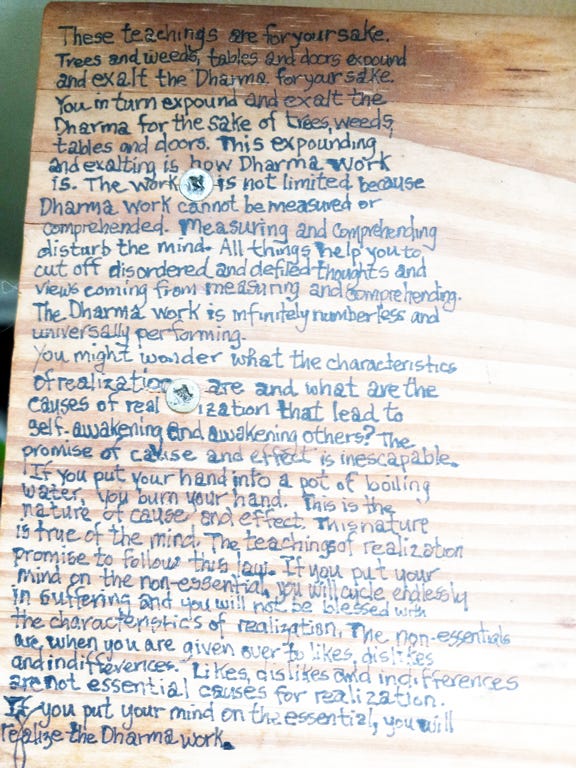 These teachings are for your sake.
Trees and weeds, tables and doors expound
and exalt the Dharma for your sake.
You in turn expound and exalt the
Dharma for the sake of trees, weeds,
tables and doors. This expounding
and exalting is how Dharma work
is. The work is not limited because
Dharma work cannot be measured or
comprehended. Measuring and comprehending
disturb the mind. All things help you to
cut off disordered and defiled thoughts and
views coming from measuring and comprehending.
The Dharma work is infinitely numberless and
universally performing.
You might wonder what the characteristics
of realization are and what are the
causes of realization that lead to
self-awakening and awakening others? The
promise of cause and effect is inescapable.
If you put your hand into a pot of boiling
water, you burn your hand. This is the
nature of cause and effect. This nature
is true of the mind. The teachings of realization
promise to follow this law. If you put your
mind on the non-essential, you will cycle endlessly
in suffering and you will not be blessed with
the characteristics of realization. The non-essentials
are, when you are given over to likes, dislikes
and indifferences. Likes, dislikes and indifferences
are not essential causes for realization.
If you put your mind on the essential, you will
realize the Dharma work.